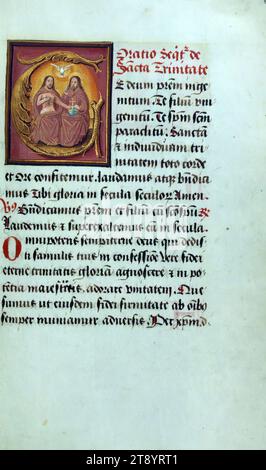 Oratio Seqt' de
Sancta Trinitate
E deum prem inge
nitum Te filium uni
genitum Te spm scm
paraclitum Sanctā
& indiuiduam tri
nitatem toto corde
et Ore confitemur laudamus atqz bndici
mus Tibi gloria in secula seculorum Amen
Bndicamus prem et filium cū scospū
Laudemus & superexaltemus eū in secula
Omnipotens sempiterne deus qui dedis
ti famulis tuis in confessiōe vere fidei
eterne trinitatis gloriā agnoscere & in po
tētia maiestatis adorare vnitatem Que
sumus ut eiusdem fidei firmitate ab oībo
semper muniamur aduersis Per xpm d
alamy
Image ID: 2T8YRT1
www.alamy.com